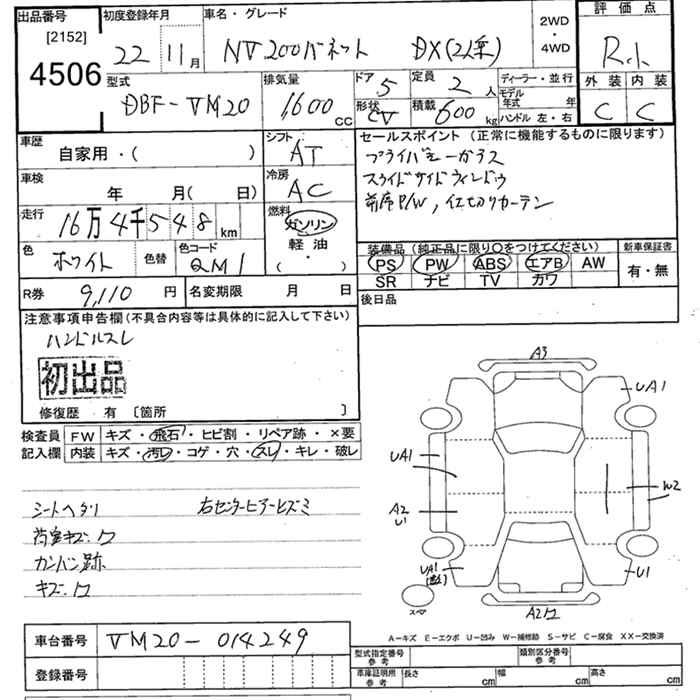 出品番号 初度登録年月 車名・グレード 2WD・4WD 評価点
[2152]
4506 22 11月 NV200バネット DX(2人乗) R小
型式 排気量 ドア 5 定員 2人 ディーラー・並行 外装 内装
DBF-VM20 1,600 CC 形状 CV 積載 600 kg モデル年式 年 C C
ハンドル 左・右
車歴 シフト セールスポイント (正常に機能するものに限ります)
自家用・( ) AT プライバシーガラス
車検 冷房 スライドサイドウィンドウ
年 月( 日) AC 前席P/W, 仕切りカーテン
走行 燃料
16万4千548km ガソリン
色 色替 色コード 軽油 装備品 (純正品に限り○をつけてください) 新車保証書
ホワイト QM1 ( ・ ) PS PW ABS エアB AW 有・無
SR ナビ TV カワ
R券 9,110円 名変期限 月 日 後日品
注意事項申告欄 (不具合内容等は具体的に記入して下さい)
ハンドルスレ
初出品
修復歴 有 〔箇所 〕
検査員 FW キズ・飛石・ヒビ割・リペア跡・×要
記入欄 内装 キズ・汚レ・コゲ・穴・スレ・キレ・破レ
シートヘタリ 右センターピラーヒズミ
荷室キズ.ワ
カンバン跡
キズ.ワ
A3
UA1
UA1
A2
U1
W2
UA1
U1
A2
A-キズ E-エクボ U-凹み W-補修跡 S-サビ C-腐食 XX-交換済
車台番号 VM20-014249
登録番号
型式指定番号 参考 類別区分番号 参考
車庫証明用 参考 長さ cm 幅 cm 高さ cm